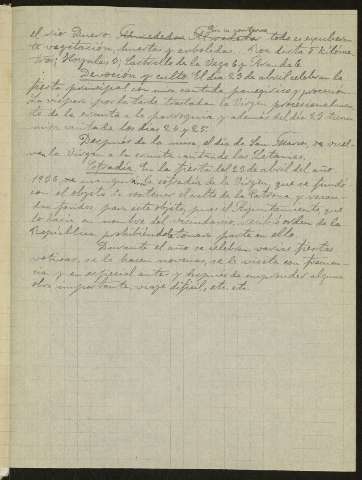 el río Duero. todo es exuberan-
te vegetación, huertas y arboledas. Roa dista 5 kilóme-
tros; Hoyales 3; Castrillo de la Vega 6 y Aranda
Devoción y culto El día 23 de abril celebran la
fiesta principal con misa cantada, panegírico y procesión.
La víspera por la tarde trasladan la Virgen procesionalmen-
te de la ermita a la parroquia y además del 23 tienen
misa cantada los días 24 y 25.
Después de la misa, el día de San Marcos, se vuel-
ve la Virgen a la ermita cantando las Letanías.
Cofradía En la fiesta del 23 de abril del año
se inauguró la cofradía de la Virgen, que se fundó
con el objeto de sostener el culto de la Patrona y recau-
dar fondos para este objeto, pues el Ayuntamiento que
lo hacía en nombre del vecindario, recibió orden de la
República prohibiéndole tomara parte en ella.
Durante el año se celebran varias fiestas
votivas, se le hacen novenas, se le visita con frecuen-
cia y en especial antes y después de emprender alguna
obra importante, viaje difícil, etc. etc.